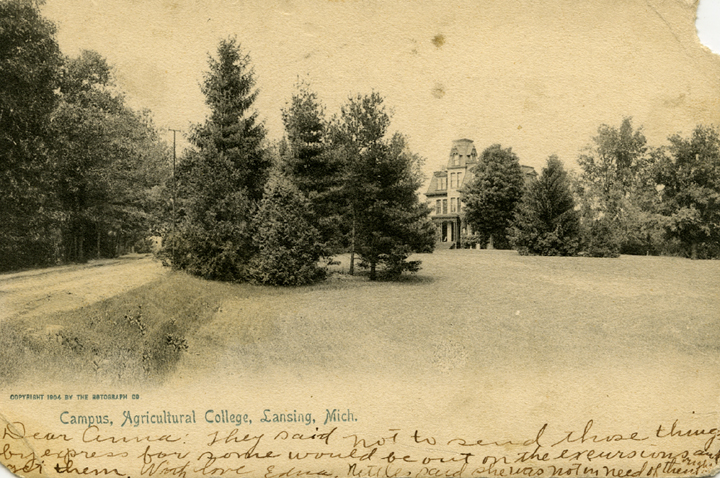 COPYRIGHT 1904 BY THE ROTOGRAPH CO
Campus, Agricultural College, Lansing, Mich.
Dear Anna: They said not to send those things
by express for some would be out on the excursions and
get them. With love Edna. Nettles said she was not in need of them right